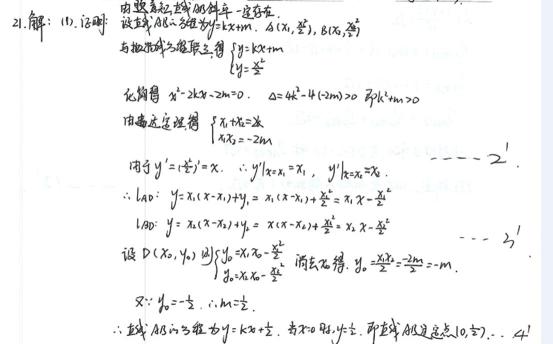 由题意知,直线AB斜率一定存在.
21.解: (1).证明: 设直线AB的方程为y=kx+m. A(x₁,x₁²/2), B(x₂,x₂²/2)
与抛物线方程联立得 {y=kx+m
y=x²/2
化简得 x²-2kx-2m=0. Δ=4k²-4(-2m)>0 即k²+2m>0
由韦达定理得 {x₁+x₂=2k
x₁x₂=-2m
由于 y'=(x²/2)'=x. ∴y'|x=x₁=x₁, y'|x=x₂=x₂. ----2'
∴l AD: y=x₁(x-x₁)+y₁=x₁(x-x₁)+x₁²/2=x₁x-x₁²/2
l BD: y=x₂(x-x₂)+y₂=x₂(x-x₂)+x₂²/2=x₂x-x₂²/2 ---3'
设 D(x₀,y₀) 则{y₀=x₁x₀-x₁²/2
y₀=x₂x₀-x₂²/2 消去x₀得. y₀=x₁x₂/2=-2m/2=-m.
又∵y₀=-1/2. ∴m=1/2.
∴直线AB的方程为y=kx+1/2. 当x=0时,y=1/2. 即直线AB过定点(0,1/2)...4'